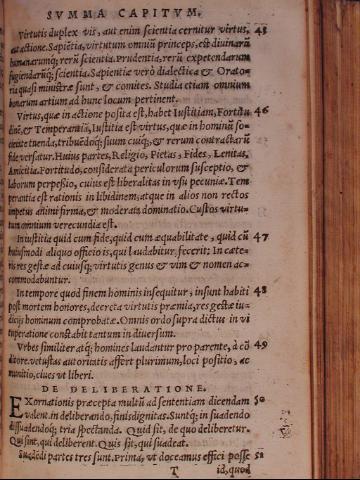 SVMMA CAPITVM.
Virtutis duplex vis, aut enim scientia cernitur virtus, 45
aut actione. Sapiẽtia, virtutum omniũ princeps, est diuinarũ
humanarumq; rerũ scientia. Prudentia, rerũ expetendarum
fugiendarũq; scientia. Sapientiæ verò dialectica & Orato-
ria quasi ministræ sunt, & comites. Studia etiam omnium
bonarum artium ad hunc locum pertinent.
Virtus, quæ in actione posita est, habet Iustitiam, Fortitu 46
dinẽ, & Temperantiã. Iustitia est virtus, quæ in hominũ so-
cietate tuenda, tribuẽdoq; suum cuiq;, & rerum contractarũ
fide versatur. Huius partes, Religio, Pietas, Fides, Lenitas,
Amicitia. Fortitudo, considerata periculorum susceptio, &
laborum perpessio, cuius est liberalitas in vsu pecuniæ. Tem
perantia est rationis in libidinem, atque in alios non rectos
impetus animi firma, & moderata dominatio. Custos virtu-
tum omnium verecundia est.
In iustitia quid cum fide, quid cum æquabilitate, quid cũ 47
huiusmodi aliquo officio is, qui laudabitur, fecerit: In cæte-
ris res gestæ ad cuiusq; virtutis genus & vim & nomen ac-
commodabuntur.
In tempore quod finem hominis insequitur, insunt habiti 48
post mortem honores, decreta virtutis præmia, res gestæ iu-
dicijs hominum comprobatæ. Omnis ordo supra dictus in vi
tuperatione constabit tantum in diuersum.
Vrbes similiter atq; homines laudantur pro parente, à cõ 49
ditore. vetustas autoritatis affert plurimum, loci positio, ac
munitio, ciues vt liberi.
DE DELIBERATIONE.
EXornationis præcepta multũ ad sententiam dicendam 50
valent. in deliberando, finis dignitas. Suntq; in suadendo
dissuadendoq; tria spectanda. Quid sit, de quo deliberetur.
Qui sint, qui deliberent. Quis sit, qui suadeat.
Suadẽdi partes tres sunt. Prima, vt doceamus effici posse 51
T id, quod